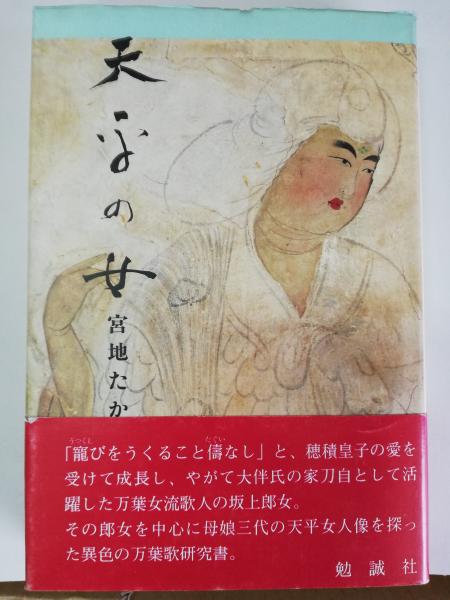 天平の女
宮地たか
「寵びをうくること儔なし」と、穂積皇子の愛を
受けて成長し、やがて大伴氏の家刀自として活
躍した万葉女流歌人の坂上郎女。
その郎女を中心に母娘三代の天平女人像を探っ
た異色の万葉歌研究書。
勉誠社